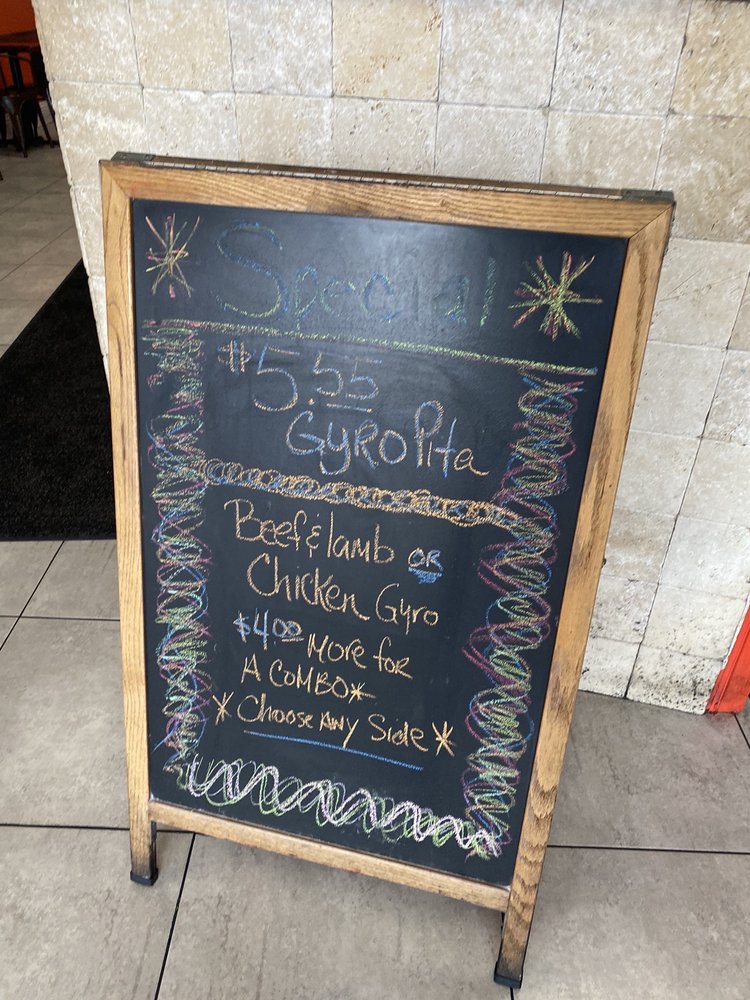 Special!
$5.55
GYRO Pita
Beef & lamb OR
Chicken Gyro
$4.00 More for
A COMBO*
* Choose ANY Side *